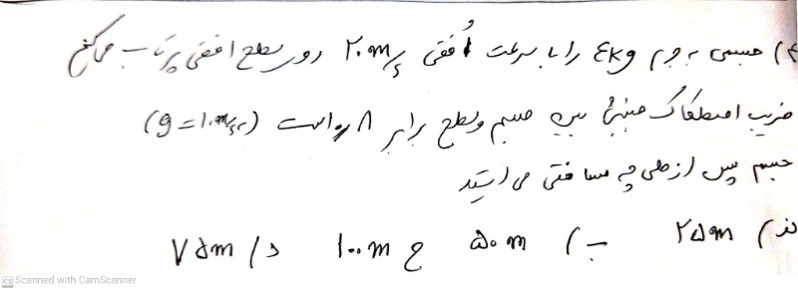 ۴) جسمی به جرم ۴kg را با سرعت افقی ۲۰m/s روی سطح افقی پرتاب می‌کنیم
ضریب اصطکاک جنبشی بین جسم و سطح برابر ۰/۸ است (g=۱۰m/s²)
جسم پس از طی چه مسافتی می‌ایستد
الف) ۲۵m ب) ۵۰m ج ۱۰۰m د) ۷۵m
CS Scanned with CamScanner